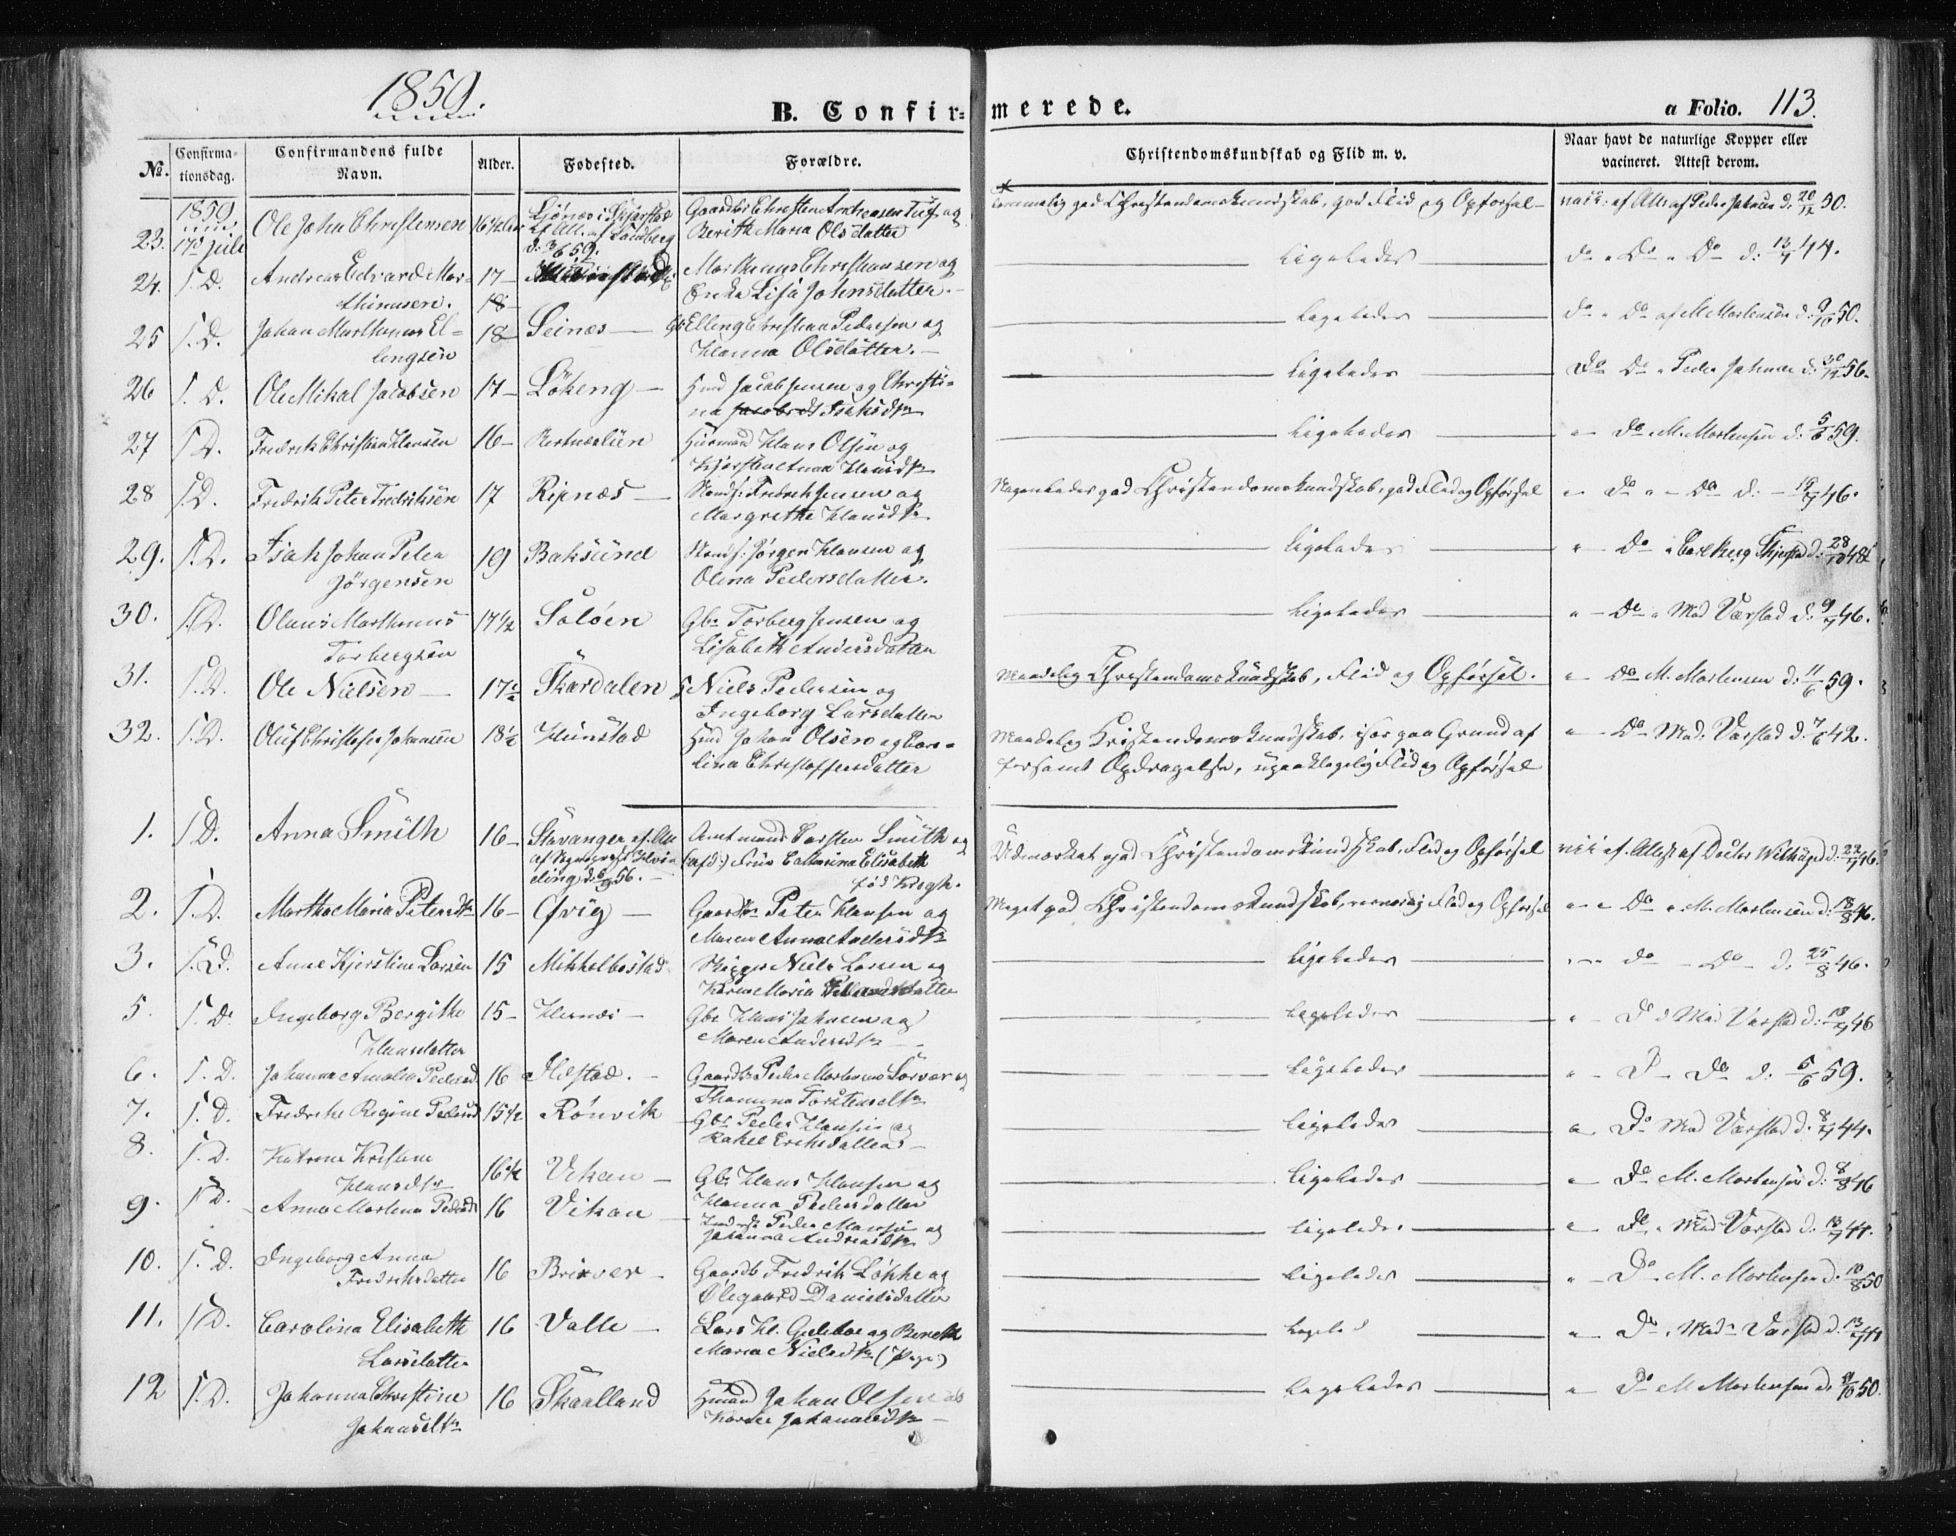 1859.
B. Confirmerede.
a Folio. 113.
No. Confirmationsdag. Confirmandens fulde Navn. Alder. Fødested. Forældre. Christendomskundskab og Flid m. v. Naar havt de naturlige Kopper eller vacineret. Attest derom.
1859.
23. 17de Juli Ole Johan Christensen 16 1/2 Gaardbr Christen Andreasen Tuf og Berith Maria Olsdatter god Christendomskundskab, god Flid og Opførsel vacc. af Att. af Peder Johnsen d. 20/12 50.
24. S. D. Andreas Edvard Marthinusen. 17 Marthinus Christiansen og Lisa Johnsdatter. Ligeledes Do Do Do d. 13/7 44.
25 S. D. Johan Marthinus Ellingsen 18 Seines Gbr Elling Christian Pedersen og Hanna Olsdatter. Ligeledes Do Do af M. Mortensen d. 9/10 50.
26 S. D. Ole Mikal Jacobsen 17 Løkeng Hmd Jacob Jensen og Christina Isaksdtr Ligeledes Do Do Peder Johnsen d. 30/12 56.
27 S. D. Fredrik Christian Hansen 16 Husmand Hans Olsen og Kjerstina Anna Hansdtr Ligeledes Do M. Mortensen d. 5/6 59.
28 S. D. Fredrik Peter Fredriksen 17 Ripnæs Fredrik Jensen og Margrethe Hansdtr Nogenledes god Christendomskundskab, god Flid og Opførsel Do Do d. 18/7 46.
29. S. D. Isak Johan Peter Jørgensen 19 Baksund Jørgen Hansen og Olina Pedersdatter. Ligeledes Do Carlberg Skjerstad d. 28/10 48
30. S. D. Olaus Marthinus Torbergsen 17 1/2 Soløen Gbr Torberg Jensen og Lisabeth Andersdatter Ligeledes Do Mad Værstad d. 9/7 46.
31. S. D. Ole Nielsen 17 1/2 Skardalen Niels Pedersen og Ingeborg Larsdatter Maadelig Christendomskundskab, Flid og Opførsel. Do M. Mortensen d. 11/6 59.
32. S. D. Oluf Christofer Johansen 18 1/2 Hunstad Hmd Johan Olsen og Carolina Christoffersdatter Maadelig Kristendomskundskab, især paa Grund af forsømt Opdragelse, upaaklagelig Flid og Opførsel Do Mad. Værstad d. 7/6 42.
1. S. D. Anna Smith 16 Stavanger ef. Att af Sogneprest d. 5/9 56. Amtmand Carsten Smith og (afd:) Frue Catharina Elisabeth fød Krogh. Udmærket god Christendomskundskab, Flid og Opførsel vacc ef. Attest af Doctor d. 22/7 46.
2. S. D. Martha Maria Petersdtr 16 Øvrig Gaardbr Peter Hansen og Maren Anna Andersdtr Meget god Christendomskundskab, Flid og Opførsel Do M. Mortensen d. 18/8 46.
3. S. D. Anne Kjerstine Larsen 15 Mikkelbostad Skipper Niels Larsen og Karen Maria Ligeledes Do Do d. 25/8 46.
5. S. D. Ingeborg Bergitte Hansdatter 15 Hernæs Gbr Hans Johnsen og Maren Andersdtr Ligeledes D Mad Værstad d. 18/7 46
6. S. D. Johanna Amalia Pedersd 16 Ilstad. Gaardb. Peder Mortensen Sørver og Thomina Torstensdtr Ligeledes D Do d. 5/6 59.
7. S. D. Fredrikke Regine Pedersd 15 1/2 Rønvik Gbr Peder Hansen og Rakel Ericksdatter Ligeledes Do Mad Værstad d. 8/7 44.
8. S. D. Katrine Kristine Hansdtr 16 1/2 Vikan Gbr Hans Hansen og Hanna Pedersdatter Ligeledes Do M. Mortensen d. 8/8 46
9. S. D. Anna Martina Pedersd 16 Vikan Peder og Johanna Andreasdtr Ligeledes Do Mad Værstad d. 13/7 44.
10. S. D. Ingeborg Anna Fredriksdatter 16 Brixver Gaardb Fredrik Løkke og Olegaard Danielsdatter Ligeledes Do M. Mortensen d. 10/8 50
11. S. D. Carolina Elisabeth Larsdatter 16 Valle Lars og Bereth Maria Nielsdtr Ligeled Do Mad Værstad d. 13/7 44
12 S. D. Johanna Christine Johansdtr 16 Skaalland Hmand Johan Olsen og Karen Johannesdtr Ligeledes Do M Mortensen d. 9/10 50.